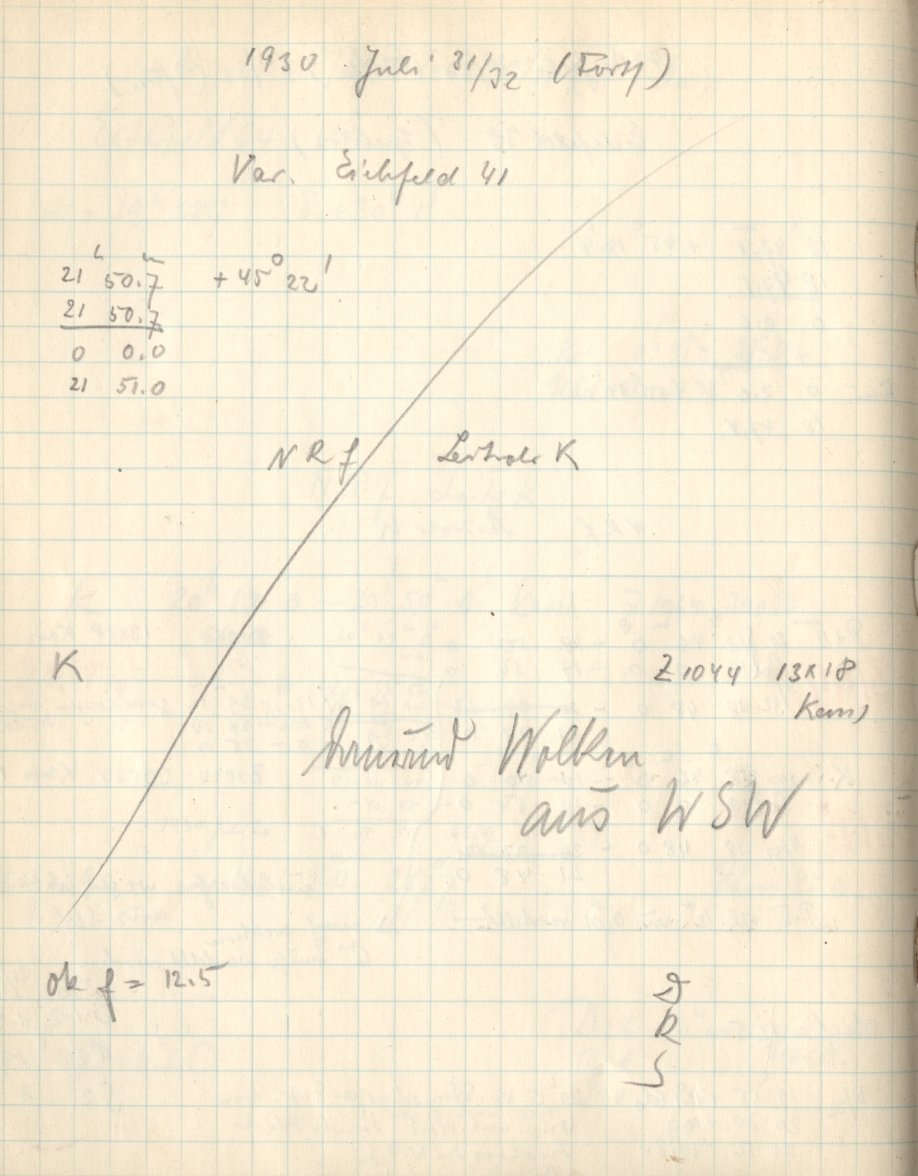 1930 Juli 31/32 (Forts)
Var. Eichfeld 41
21 h 50.7 m + 45° 22'
21 50.7
0 0.0
21 51.0
N R f K
K Z 1044 13x18
dauernd Wolken
aus WSW
ok f = 12.5
R